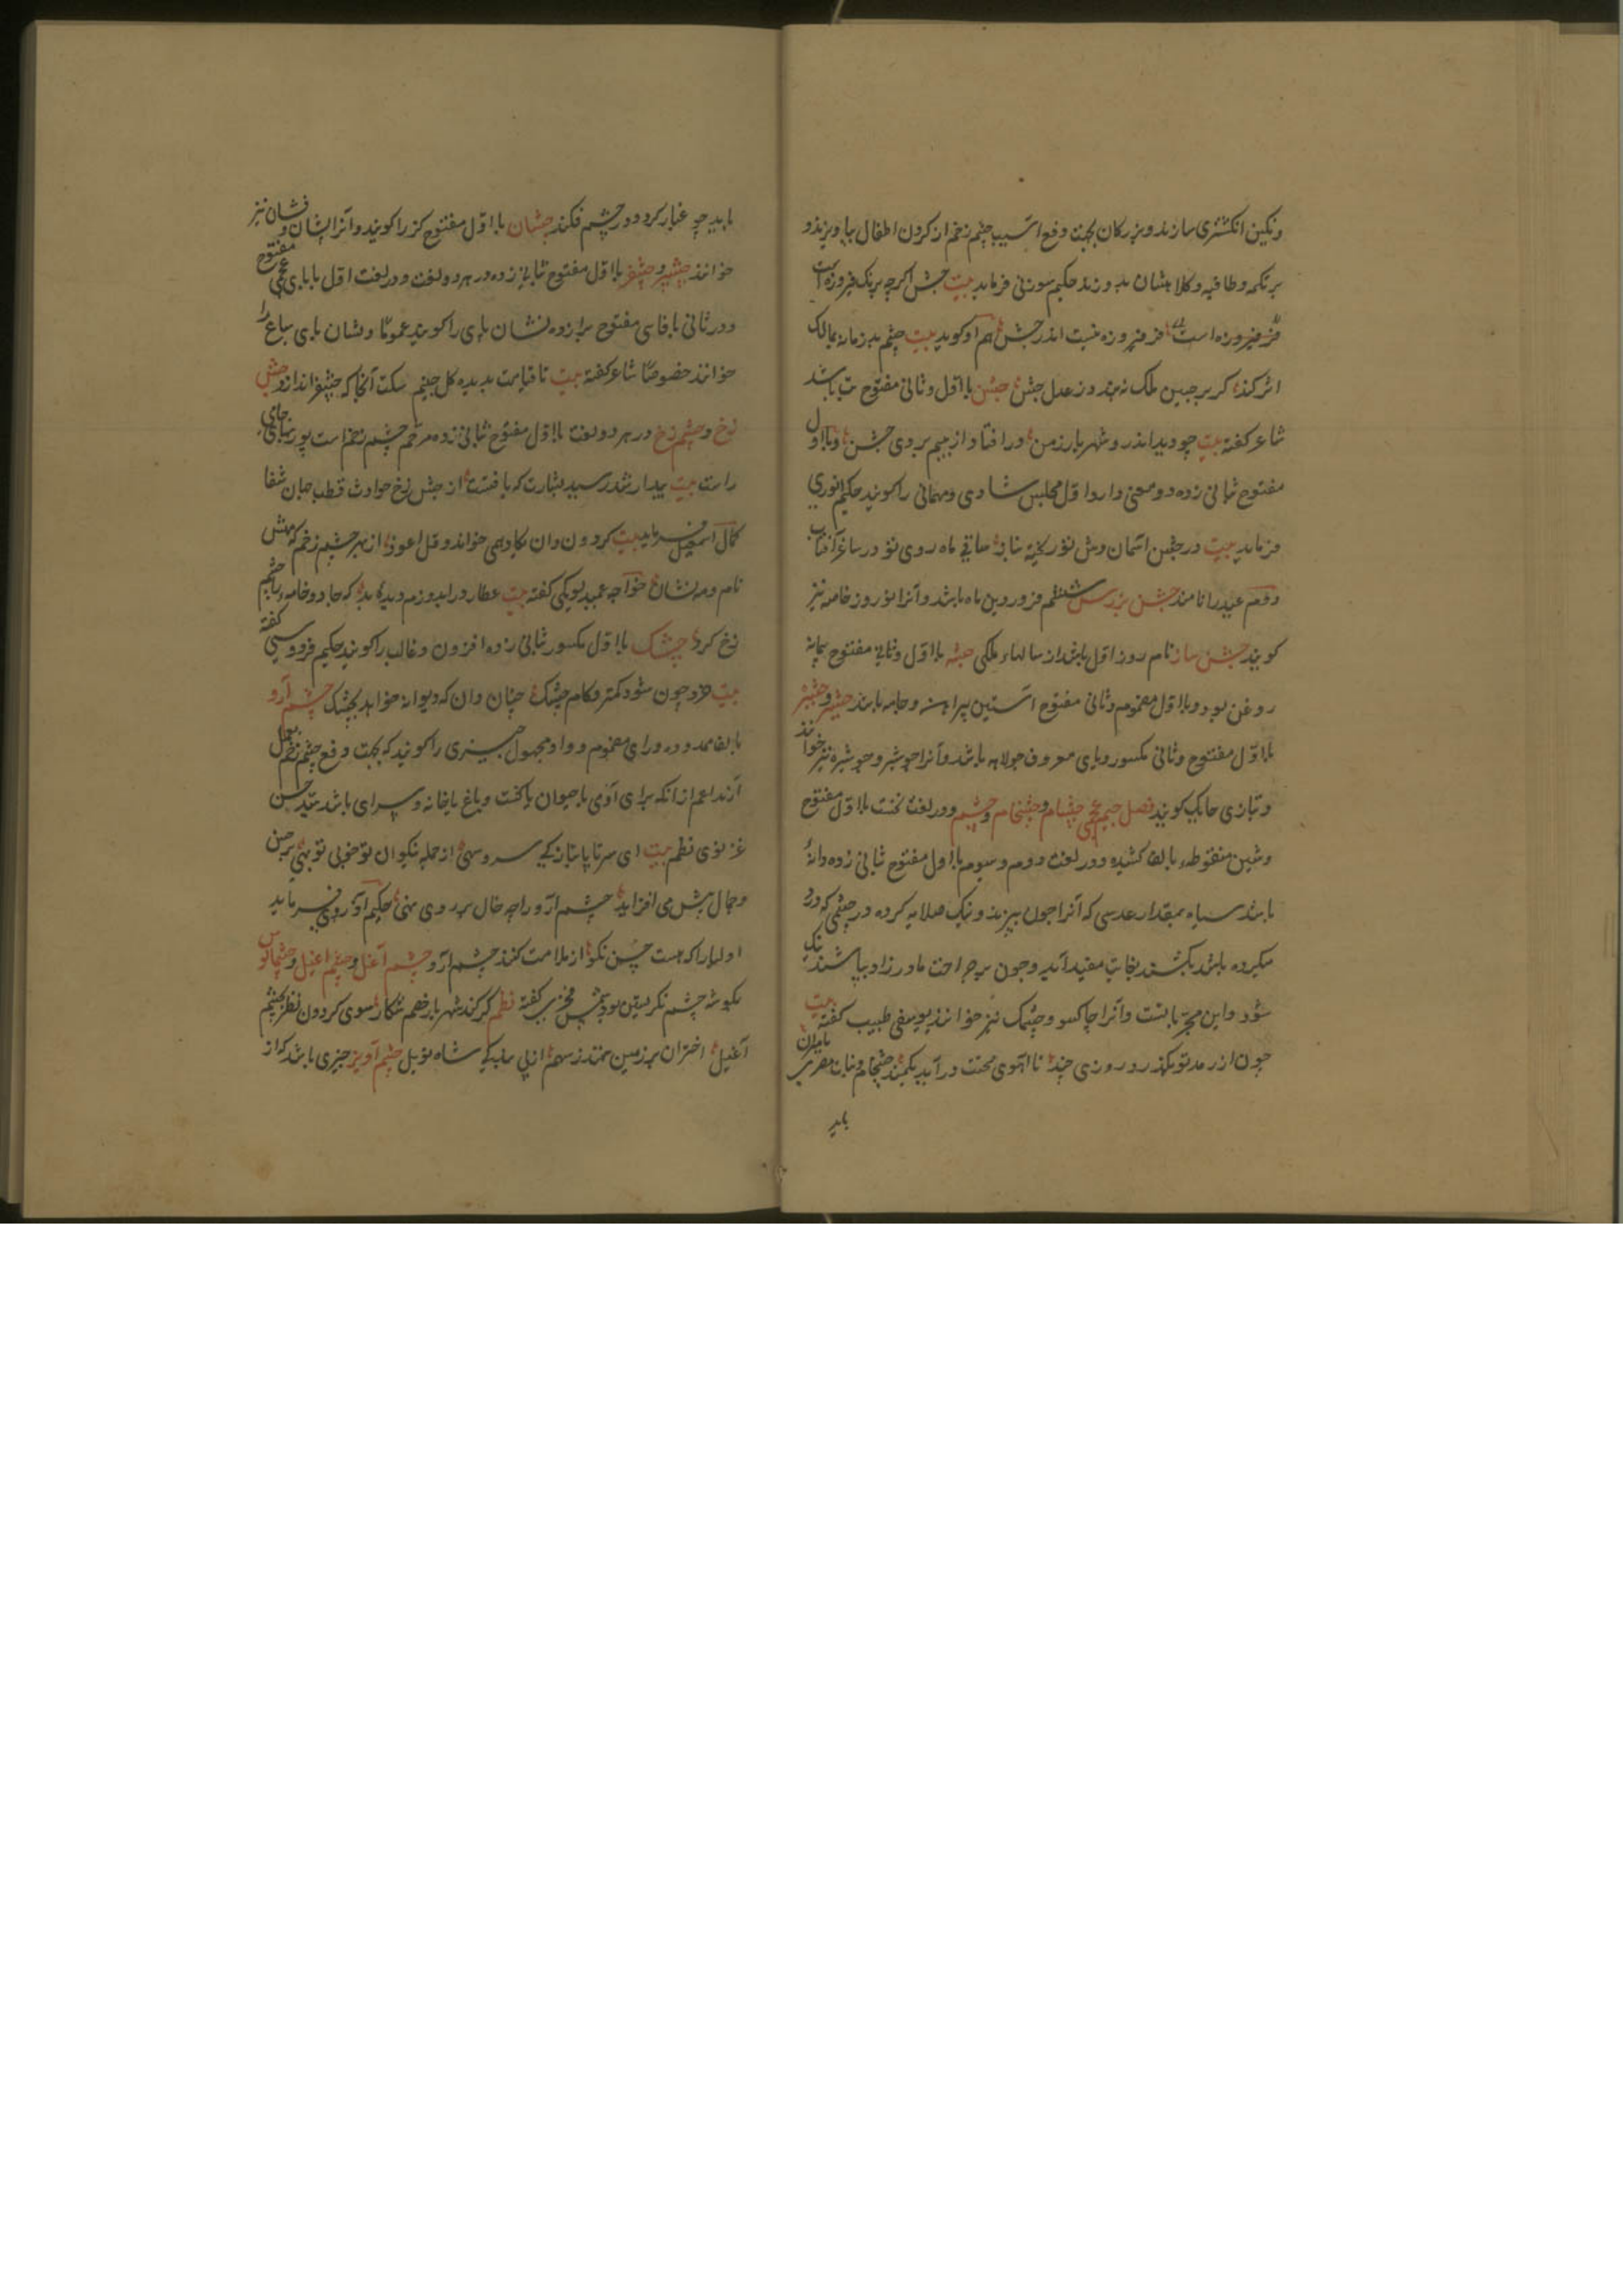 ونکین انکشتری سازند و بزرکان بجهت دفع آسیب چشم زخم از کردن اطفال بیاویزند و
بر تکمه و طاقیه و کلاه ایشان بدوزند حکیم سوزنی فرماید بیت جشن اکرچه برنک فیروزه است
فر فیروزه است فر فیروزه نیست اندر جشن هم او کوید بیت چشم بد زمانه بمالک
اثر کند کر بر جبین ملک نهند از عدل جشن جشن با اول و ثانی مفتوح تب باشد
شاعر کفته بیت چو دید اندر و شهریار زمن در افتاد از بیم بر وی جشن و با اول
مفتوح ثانی زده دو معنی دارد اول مجلس شادی و مهمانی را کویند حکیم انوری
فرماید بیت در جشن آسمان وش تو ریخته بناز ساقی ماه روی تو در ساغر آفتاب
دوم عید را نامند جشن بزرک ششم فروردین ماه باشد و آنرا نوروز خاصه نیز
کویند جشن ساز نام روز اول باشد از سالهاء ملکی جشه با اول و ثانی مفتوح پیمانه
روغن بود و با اول مضموم و ثانی مفتوح آستین پیراهن و جامه باشد جشیر و جشیره
با اول مفتوح و ثانی مکسور و یای معروف جولاهه باشد و آنرا جوشیر و جوشیره نیز خوانند
و بتازی حایک کویند فصل جیم عجمی چشام و چشخام و چشم در لغت نخست با اول مفتوح
و شین منقوطه بالف کشیده و در لغت دوم و سیوم با اول مفتوح ثانی زده دانۀ
باشد سیاه بمقدار عدسی که آنرا چون بپزند و نیک صلایه کرده در چشمی که درد
میکرده باشد بکشند بغایت مفید آید و چون بر جراحت مادرزاد بپاشند نیک
شود و این مجرّبست و آنرا چاکسو و چشمک نیز خوانند یوسفی طبیب کفته بیت
چون از رمد تو بکذرد روزی چند تا آهوی صحت در آید بکمند چشخام و نبات مصری مامیران
باید
باید چو غبار کرد و در چشم فکند چشان با اول مفتوح کز را کویند و آنرا پشان و فشان نیز
خوانند چشپر و چشفر با اول مفتوح ثانی زده در هر دو لغت و در لغت اول با بای عجمی مفتوح
و در ثانی با فای مفتوح برا زده نشان پای را کویند عموما و نشان پای سباع را
خوانند خصوصا شاعر کفته بیت تا قیامت بدیده کل چینم سکت آنجا که چشفر اندازد چشم
زخ و چشم زخ در هر دو لغت با اول مفتوح ثانی زده مرخم چشم زخم است پوربهای جامی
راست بیت بیدار شد رسید بشارت که یافتست از چشم زخ حوادث قطب جهان شفا
کمال اسمعیل فرماید بیت کردون وان یکاد همی خواند و قل اعوذ از بهر چشم زخم که بینش
نام و مه نشان خواجه عمید لویکی کفته بیت عطارد را بدوزم دیدۀ بد که جادو خامه را چشم
زخ کرد چشک با اول مکسور ثانی زده افزون و غالب را کویند حکیم فردوسی کفته
بیت خرد چون شود کمتر و کام چشک چنان دان که دیوانه خواهد بچشک چشم آرو
بالف ممدوده و رای مضموم و واو مجهول چیزی را کویند که بجهت دفع چشم زخم بعمل
آرند اعم از آنکه برای آدمی یا حیوان یا کشت و باغ یا خانه و سرای باشد سید حسن
غزنوی نظم بیت ای سر تا پا بتازکی سرو سهی از جمله نیکوان تو خوبی تو بهی بر حسن
و جمال بیش می افزاید چشم آرو را چو خال بر روی نهی حکیم آذری فرماید
اولیا را که هست حسن نکو از ملامت کنند چشم آرو چشم آغل و چشم اغیل و چشماغوس
بکوشه چشم نکریستن بود شمس فخری کفته نظم کر کند شهریار خصم شکار سوی کردون نظر بچشم
آغیل اختران بر زمین نهند ز سهم از پی بندکی شاه نوبل چشم آویز چیزی باشد که از